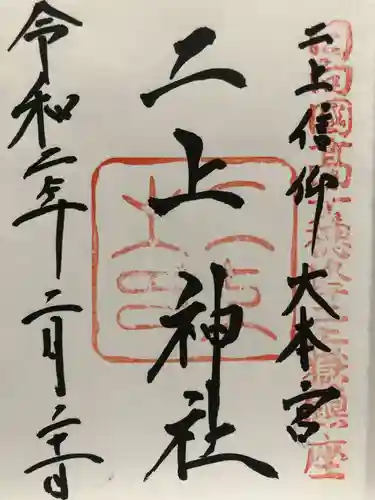 二上信仰 大本宮
二上神社
令和二年二月二十一日